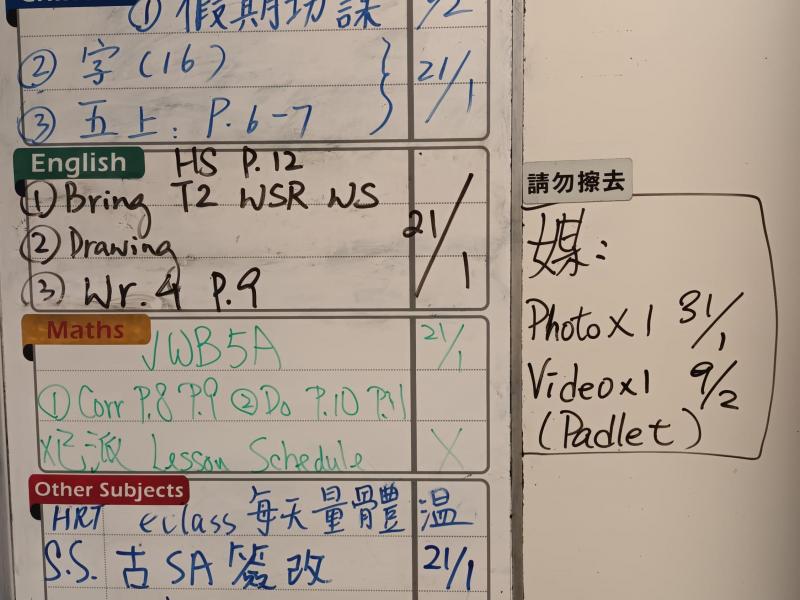 ① 假期功課 9/2
② 字(16)
③ 五上: P.6-7 21/1
English HS P.12
① Bring T2 WSR WS
② Drawing 21/1
③ Wr.4 P.9
Maths
√WB5A 21/1
① Corr P.8 P.9 ② Do P.10 P.11
已派 Lesson Schedule X
Other Subjects
HRT eclass 每天量體溫
S.S. 古SA簽改 21/1
請勿擦去
媒:
Photo X 1 31/1
Video x 1 9/2
(Padlet)